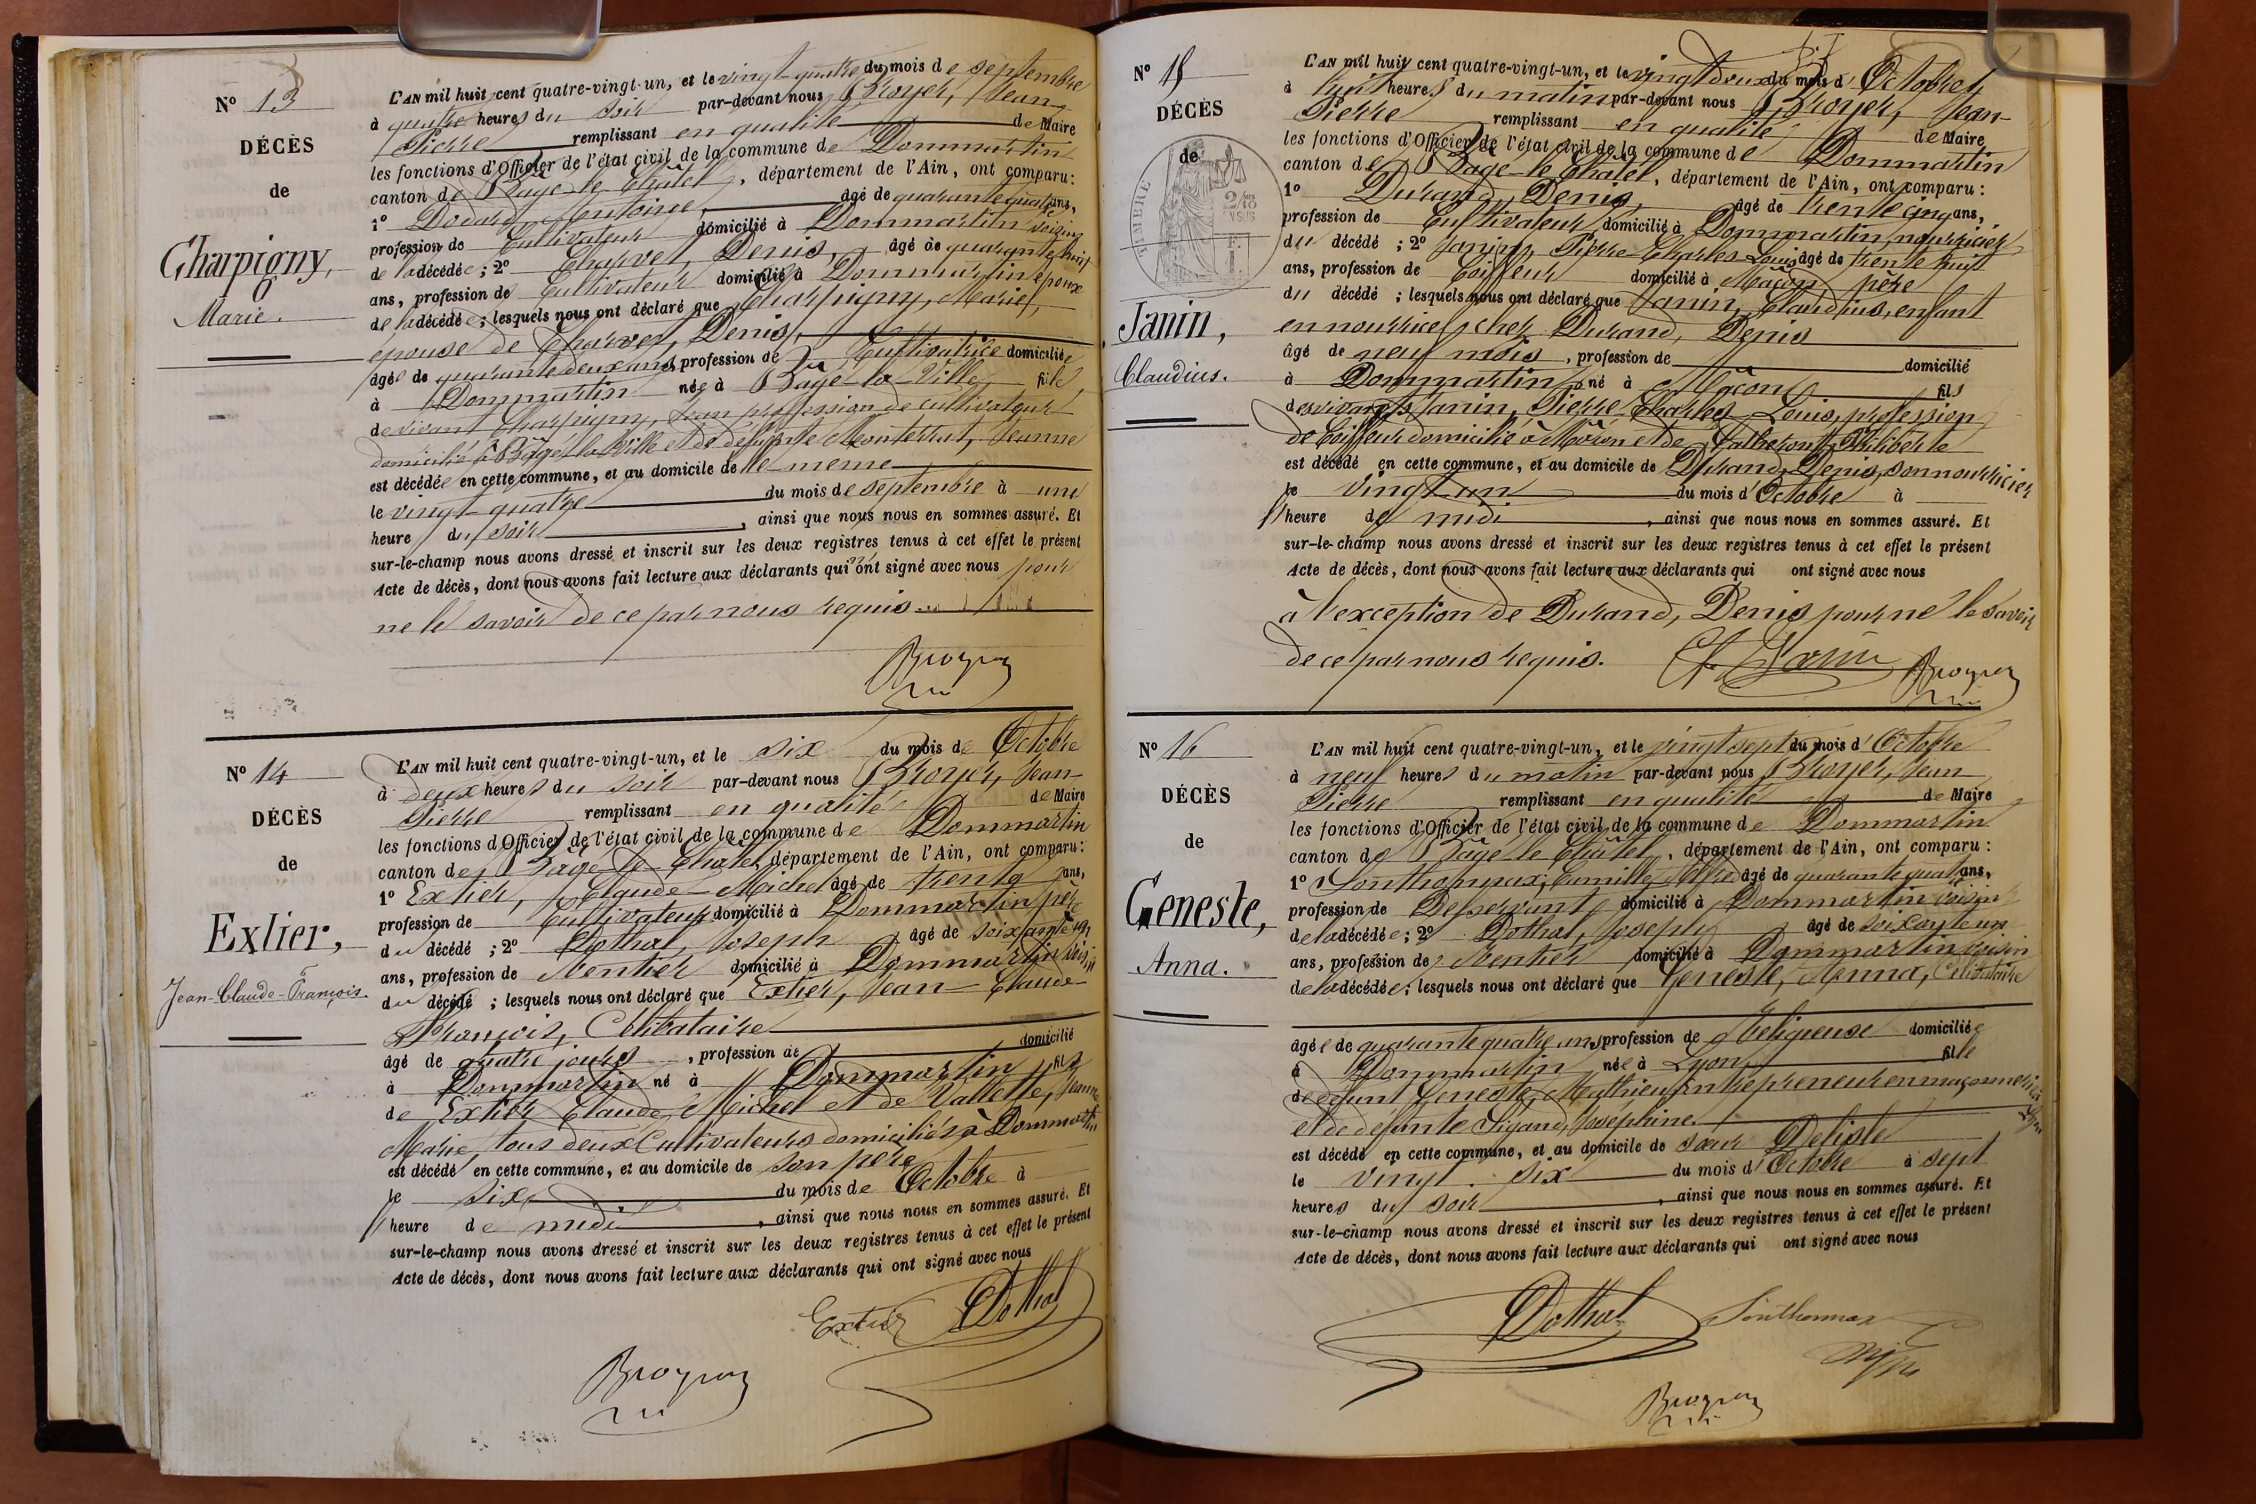 N° 13
DÉCÈS
de
Charpigny,
Marie.
L'AN mil huit cent quatre-vingt-un, et le vingt-quatre du mois de septembre
à quatre heures du soir par-devant nous Broyer, Jean-
Pierre remplissant en qualité de Maire
les fonctions d'Officier de l'état civil de la commune de Dommartin
canton de Bâgé-le-Châtel, département de l'Ain, ont comparu:
1° Antoine, âgé de quarante quatre ans,
profession de Cultivateur domicilié à Dommartin voisin
de la décédée; 2° Charvet, Denis, âgé de quarante huit
ans, profession de Cultivateur domicilié à Dommartin époux
de la décédée; lesquels nous ont déclaré que Charpigny, Marie,
épouse de Charvet, Denis,
âgée de quarante deux ans, profession de Cultivatrice domiciliée
à Dommartin née à Bâgé-la-Ville, fille
de vivant Charpigny, Jean profession de cultivateur
domicilié à Bâgé-la-Ville et de défunte Monterrat, Jeanne
est décédée en cette commune, et au domicile de le meme
le vingt-quatre du mois de septembre à une
heure du soir, ainsi que nous nous en sommes assuré. Et
sur-le-champ nous avons dressé et inscrit sur les deux registres tenus à cet effet le présent
Acte de décès, dont nous avons fait lecture aux déclarants qui n'ont signé avec nous pour
ne le savoir de ce par nous requis.
Broyer
N° 14
DÉCÈS
de
Exlier,
Jean-Claude-François.
L'AN mil huit cent quatre-vingt-un, et le six du mois de Octobre
à deux heures du soir par-devant nous Broyer, Jean-
Pierre remplissant en qualité de Maire
les fonctions d'Officier de l'état civil de la commune de Dommartin
canton de Bâgé-le-Châtel, département de l'Ain, ont comparu:
1° Exlier, Claude-Michel âgé de trente ans,
profession de Cultivateur domicilié à Dommartin père
du décédé; 2° Dothal, Joseph, âgé de soixante un
ans, profession de Rentier domicilié à Dommartin voisin
du décédé; lesquels nous ont déclaré que Exlier, Jean-Claude-
François, Célibataire
âgé de quatre jours, profession de domicilié
à Dommartin né à Dommartin fils
de Exlier Claude, Michel et de Vallette, Jeanne
Marie, tous deux Cultivateurs domiciliés à Dommartin
est décédé en cette commune, et au domicile de son père
le six du mois de Octobre à
heure de midi, ainsi que nous nous en sommes assuré. Et
sur-le-champ nous avons dressé et inscrit sur les deux registres tenus à cet effet le présent
Acte de décès, dont nous avons fait lecture aux déclarants qui ont signé avec nous
Exlier Dothal
Broyer
N° 15
DÉCÈS
de
TIMBRE
Janin,
Claudius.
L'AN mil huit cent quatre-vingt-un, et le vingt deux du mois d'Octobre,
à huit heures du matin par-devant nous Broyer, Jean-
Pierre remplissant en qualité de Maire
les fonctions d'Officier de l'état civil de la commune de Dommartin
canton de Bâgé-le-Châtel, département de l'Ain, ont comparu:
1° Durand, Denis, âgé de trente cinq ans,
profession de Cultivateur domicilié à Dommartin, nourricier
du décédé; 2° Janin, Pierre-Charles-Louis âgé de trente huit
ans, profession de Coiffeur domicilié à Mâcon père
du décédé; lesquels nous ont déclaré que Janin, Claudius, enfant
en nourrice chez Durand, Denis
âgé de neuf mois, profession de domicilié
à Dommartin né à Mâcon fils
des vivants Janin, Pierre Charles Louis, profession
de Coiffeur domicilié à Mâcon et de Philiberte
est décédé en cette commune, et au domicile de Durand, Denis, son nourricier
le vingt un du mois d'Octobre à
heure de midi, ainsi que nous nous en sommes assuré. Et
sur-le-champ nous avons dressé et inscrit sur les deux registres tenus à cet effet le présent
Acte de décès, dont nous avons fait lecture aux déclarants qui ont signé avec nous
à l'exception de Durand, Denis pour ne le savoir
de ce par nous requis. Janin Broyer
N° 16
DÉCÈS
de
Geneste,
Anna.
L'AN mil huit cent quatre-vingt-un, et le vingt sept du mois d'Octobre
à neuf heures du matin par-devant nous Broyer, Jean
Pierre remplissant en qualité de Maire
les fonctions d'Officier de l'état civil de la commune de Dommartin
canton de Bâgé-le-Châtel, département de l'Ain, ont comparu:
1° Sonthonnax, Camille âgé de quarante quatre ans,
profession de Desservant domicilié à Dommartin voisin
de la décédée; 2° Dothal, Joseph âgé de soixante un
ans, profession de Rentier domicilié à Dommartin voisin
de la décédée; lesquels nous ont déclaré que Geneste, Anna, Célibataire
âgée de quarante quatre ans, profession de Religieuse domiciliée
à Dommartin née à Lyon, fille
de défunt Geneste, Mathieu, Entrepreneur en maçonnerie à Lyon
et de défunte Sigaud, Joséphine.
est décédé en cette commune, et au domicile de soeur Delisle
le vingt-six du mois d'Octobre à sept
heures du soir, ainsi que nous nous en sommes assuré. Et
sur-le-champ nous avons dressé et inscrit sur les deux registres tenus à cet effet le présent
Acte de décès, dont nous avons fait lecture aux déclarants qui ont signé avec nous
Dothal Sonthonnax
Broyer